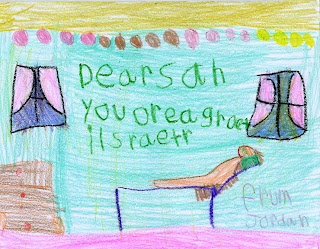 Dearsah
you oreagraet
ilsraetr
frum
Jordan